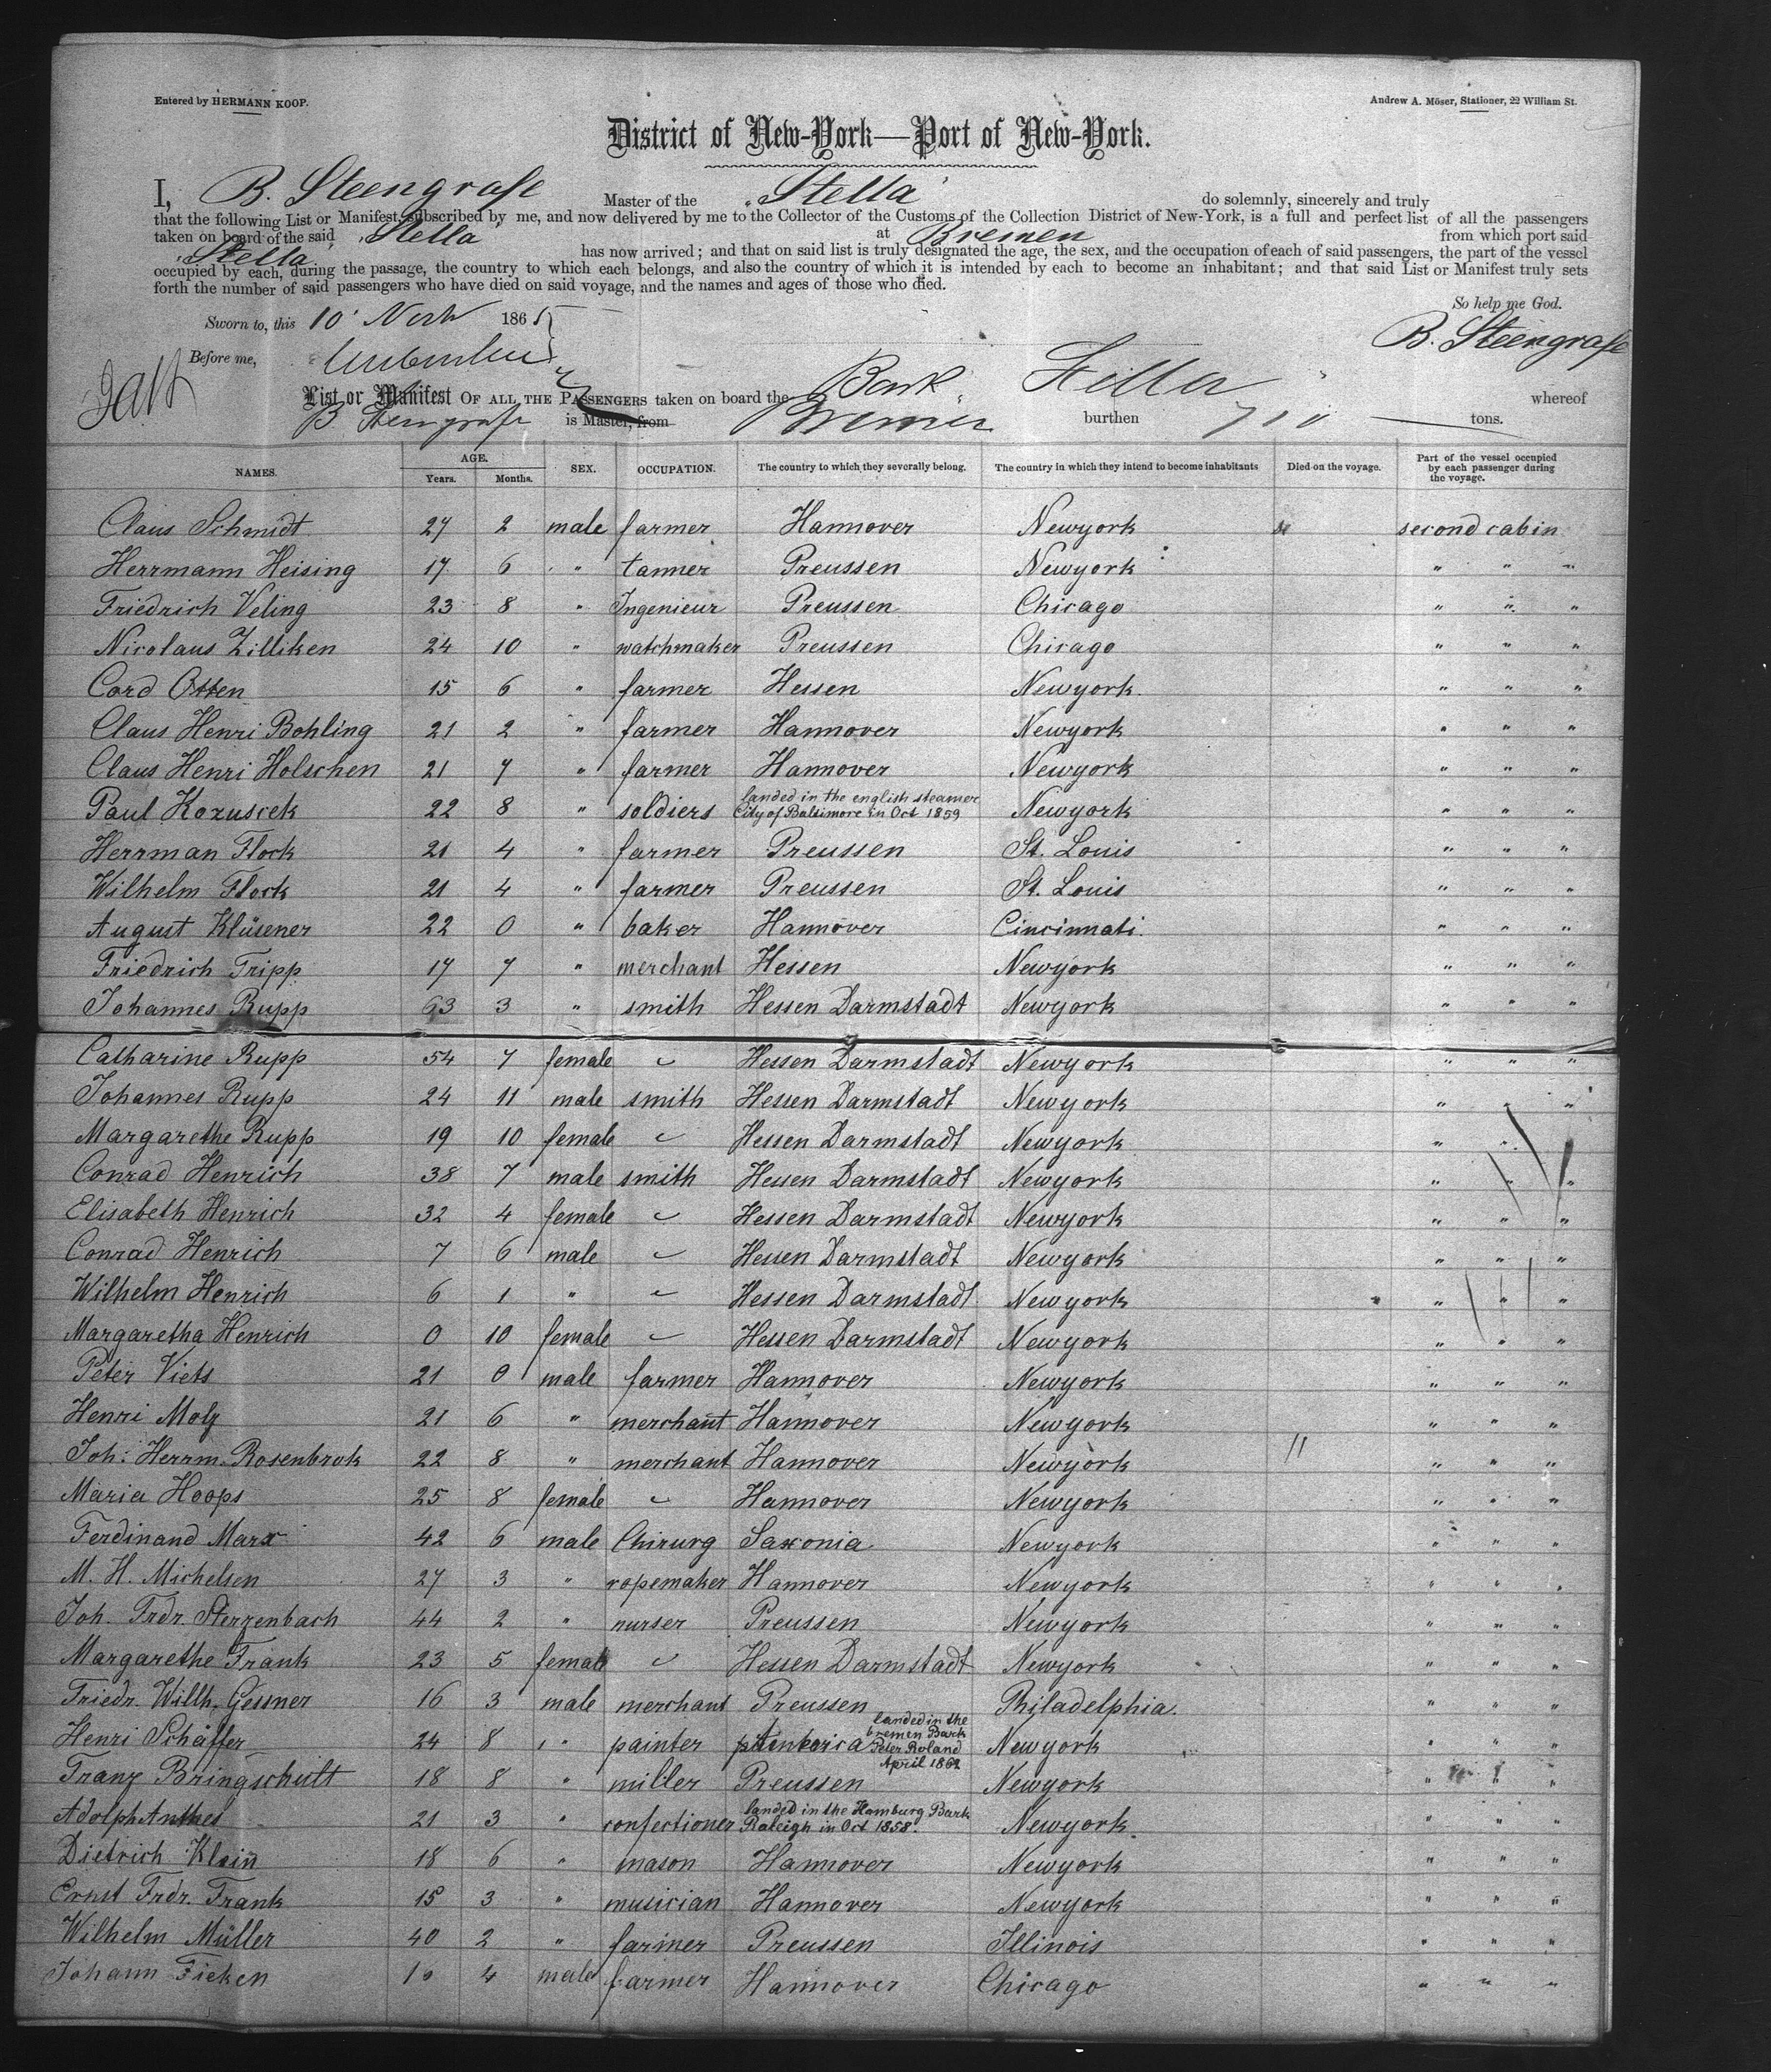 Entered by HERMANN KOOP.
Andrew A. Möser, Stationer, 22 William St.
District of New-York—Port of New-York.
I, B. Steengrafe Master of the „Stella" do solemnly, sincerely and truly
that the following List or Manifest, subscribed by me, and now delivered by me to the Collector of the Customs of the Collection District of New-York, is a full and perfect list of all the passengers
taken on board of the said „Stella" at Bremen from which port said
„Stella" has now arrived; and that on said list is truly designated the age, the sex, and the occupation of each of said passengers, the part of the vessel
occupied by each, during the passage, the country to which each belongs, and also the country of which it is intended by each to become an inhabitant; and that said List or Manifest truly sets
forth the number of said passengers who have died on said voyage, and the names and ages of those who died.
So help me God.
Sworn to, this 10' 1865
B. Steengrafe
Before me,
List or Manifest OF ALL THE PASSENGERS taken on board the Bark Stella whereof
B Steengrafe is Master, from Bremen burthen 710 tons.
NAMES. AGE. Years. Months. SEX. OCCUPATION. The country to which they severally belong. The country in which they intend to become inhabitants Died on the voyage. Part of the vessel occupied by each passenger during the voyage.
Claus Schmidt 27 2 male farmer Hannover Newyork second cabin
Herrmann Heising 17 6 " tanner Preussen Newyork " " "
Friedrich Veling 23 8 " Ingenieur Preussen Chicago " " "
Nicolaus Zilliken 24 10 " watchmaker Preussen Chicago " " "
Cord Otten 15 6 " farmer Hessen Newyork. " " "
Claus Henri Bohling 21 2 " farmer Hannover Newyork " " "
Claus Henri Holschen 21 7 " farmer Hannover Newyork " " "
Paul Kozuscek 22 8 " soldiers landed in the english steamer City of Baltimore in Oct 1859 Newyork " " "
Herrman Flock 21 4 " farmer Preussen St. Louis " " "
Wilhelm Flock 21 4 " farmer Preussen St. Louis " " "
August Klüsener 22 0 " baker Hannover Cincinnati. " " "
Friedrich Tripp 17 7 " merchant Hessen Newyork " " "
Johannes Rupp 63 3 " smith Hessen Darmstadt Newyork " " "
Catharine Rupp 54 7 female Hessen Darmstadt Newyork " " "
Johannes Rupp 24 11 male smith Hessen Darmstadt Newyork " " "
Margarethe Rupp 19 10 female Hessen Darmstadt Newyork " " "
Conrad Henrich 38 7 male smith Hessen Darmstadt Newyork " " "
Elisabeth Henrich 32 4 female Hessen Darmstadt Newyork " " "
Conrad Henrich 7 6 male Hessen Darmstadt Newyork " " "
Wilhelm Henrich 6 1 " Hessen Darmstadt Newyork " " "
Margaretha Henrich 0 10 female Hessen Darmstadt Newyork " " "
Peter Viets 21 0 male farmer Hannover Newyork " " "
Henri Molz 21 6 " merchant Hannover Newyork " " "
Joh: Herrm. Rosenbrok 22 8 " merchant Hannover Newyork " " "
Maria Hoops 25 8 female Hannover Newyork " " "
Ferdinand Marx 42 6 male Chirurg Saxonia Newyork " " "
M. H. Michelsen 27 3 " ropemaker Hannover Newyork " " "
Joh. Frdr. Sterzenbach 44 2 " nurser Preussen Newyork " " "
Margarethe Frank 23 5 female Hessen Darmstadt Newyork " " "
Friedr. Wilh. Gessner 16 3 male merchant Preussen Philadelphia. " " "
Henri Schäffer 24 8 " painter landed in the bremen Bark Peter Roland April 1862 Newyork " " "
Franz Bringschult 18 8 " miller Preussen Newyork " " "
Adolph Anthes 21 3 " confectioner landed in the Hamburg Bark Raleigh in Oct 1858. Newyork " " "
Dietrich Klein 18 6 " mason Hannover Newyork " " "
Ernst Frdr. Frank 15 3 " musician Hannover Newyork " " "
Wilhelm Müller 40 2 " farmer Preussen Illinois " " "
Johann Ficken 16 4 male farmer Hannover Chicago " " "